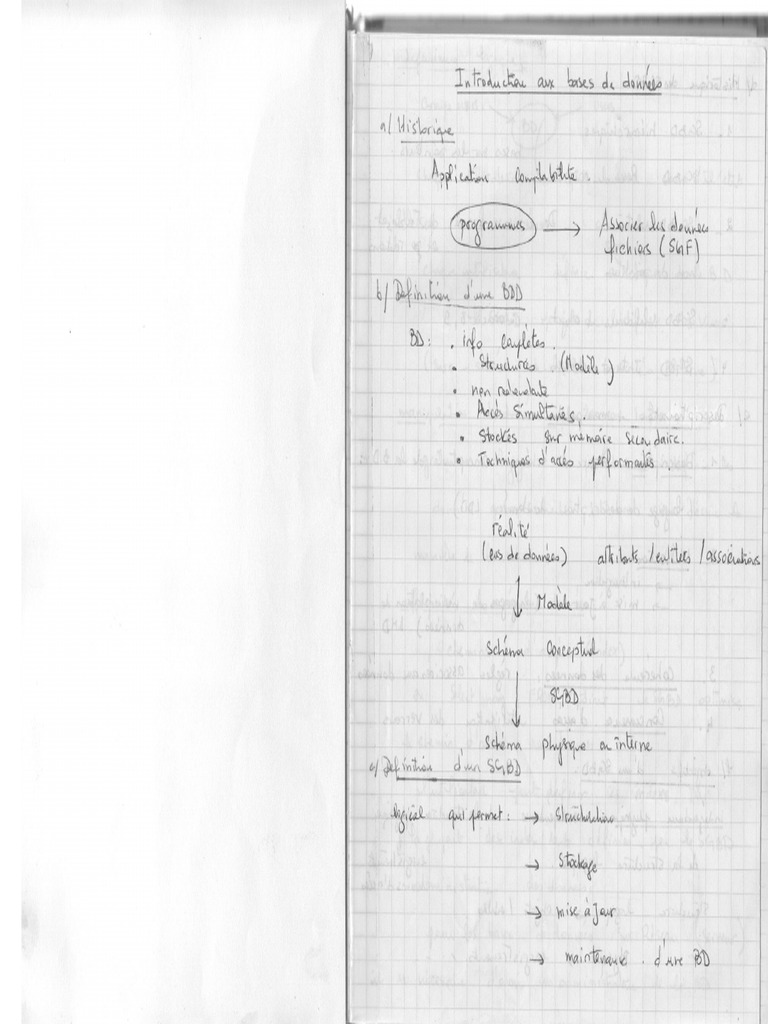 Introduction aux bases de données
a/ Historique
Application comptabilité.
programmes → Associer les données
fichiers (SGF)
b/ Définition d'une BDD
BD : • info complètes.
• Structurés (Modèle)
• non redondante
• Accès simultanés.
• Stockés sur mémoire secondaire.
• Techniques d'accès performantés
réalité
(ens de données) attributs / entités / associations
↓ Modèle
schéma conceptuel
↓ SGBD
schéma physique ou interne
c/ Définition d'un SGBD
logiciel qui permet : → Structuration
→ Stockage
→ mise à jour
→ maintenance d'une BD